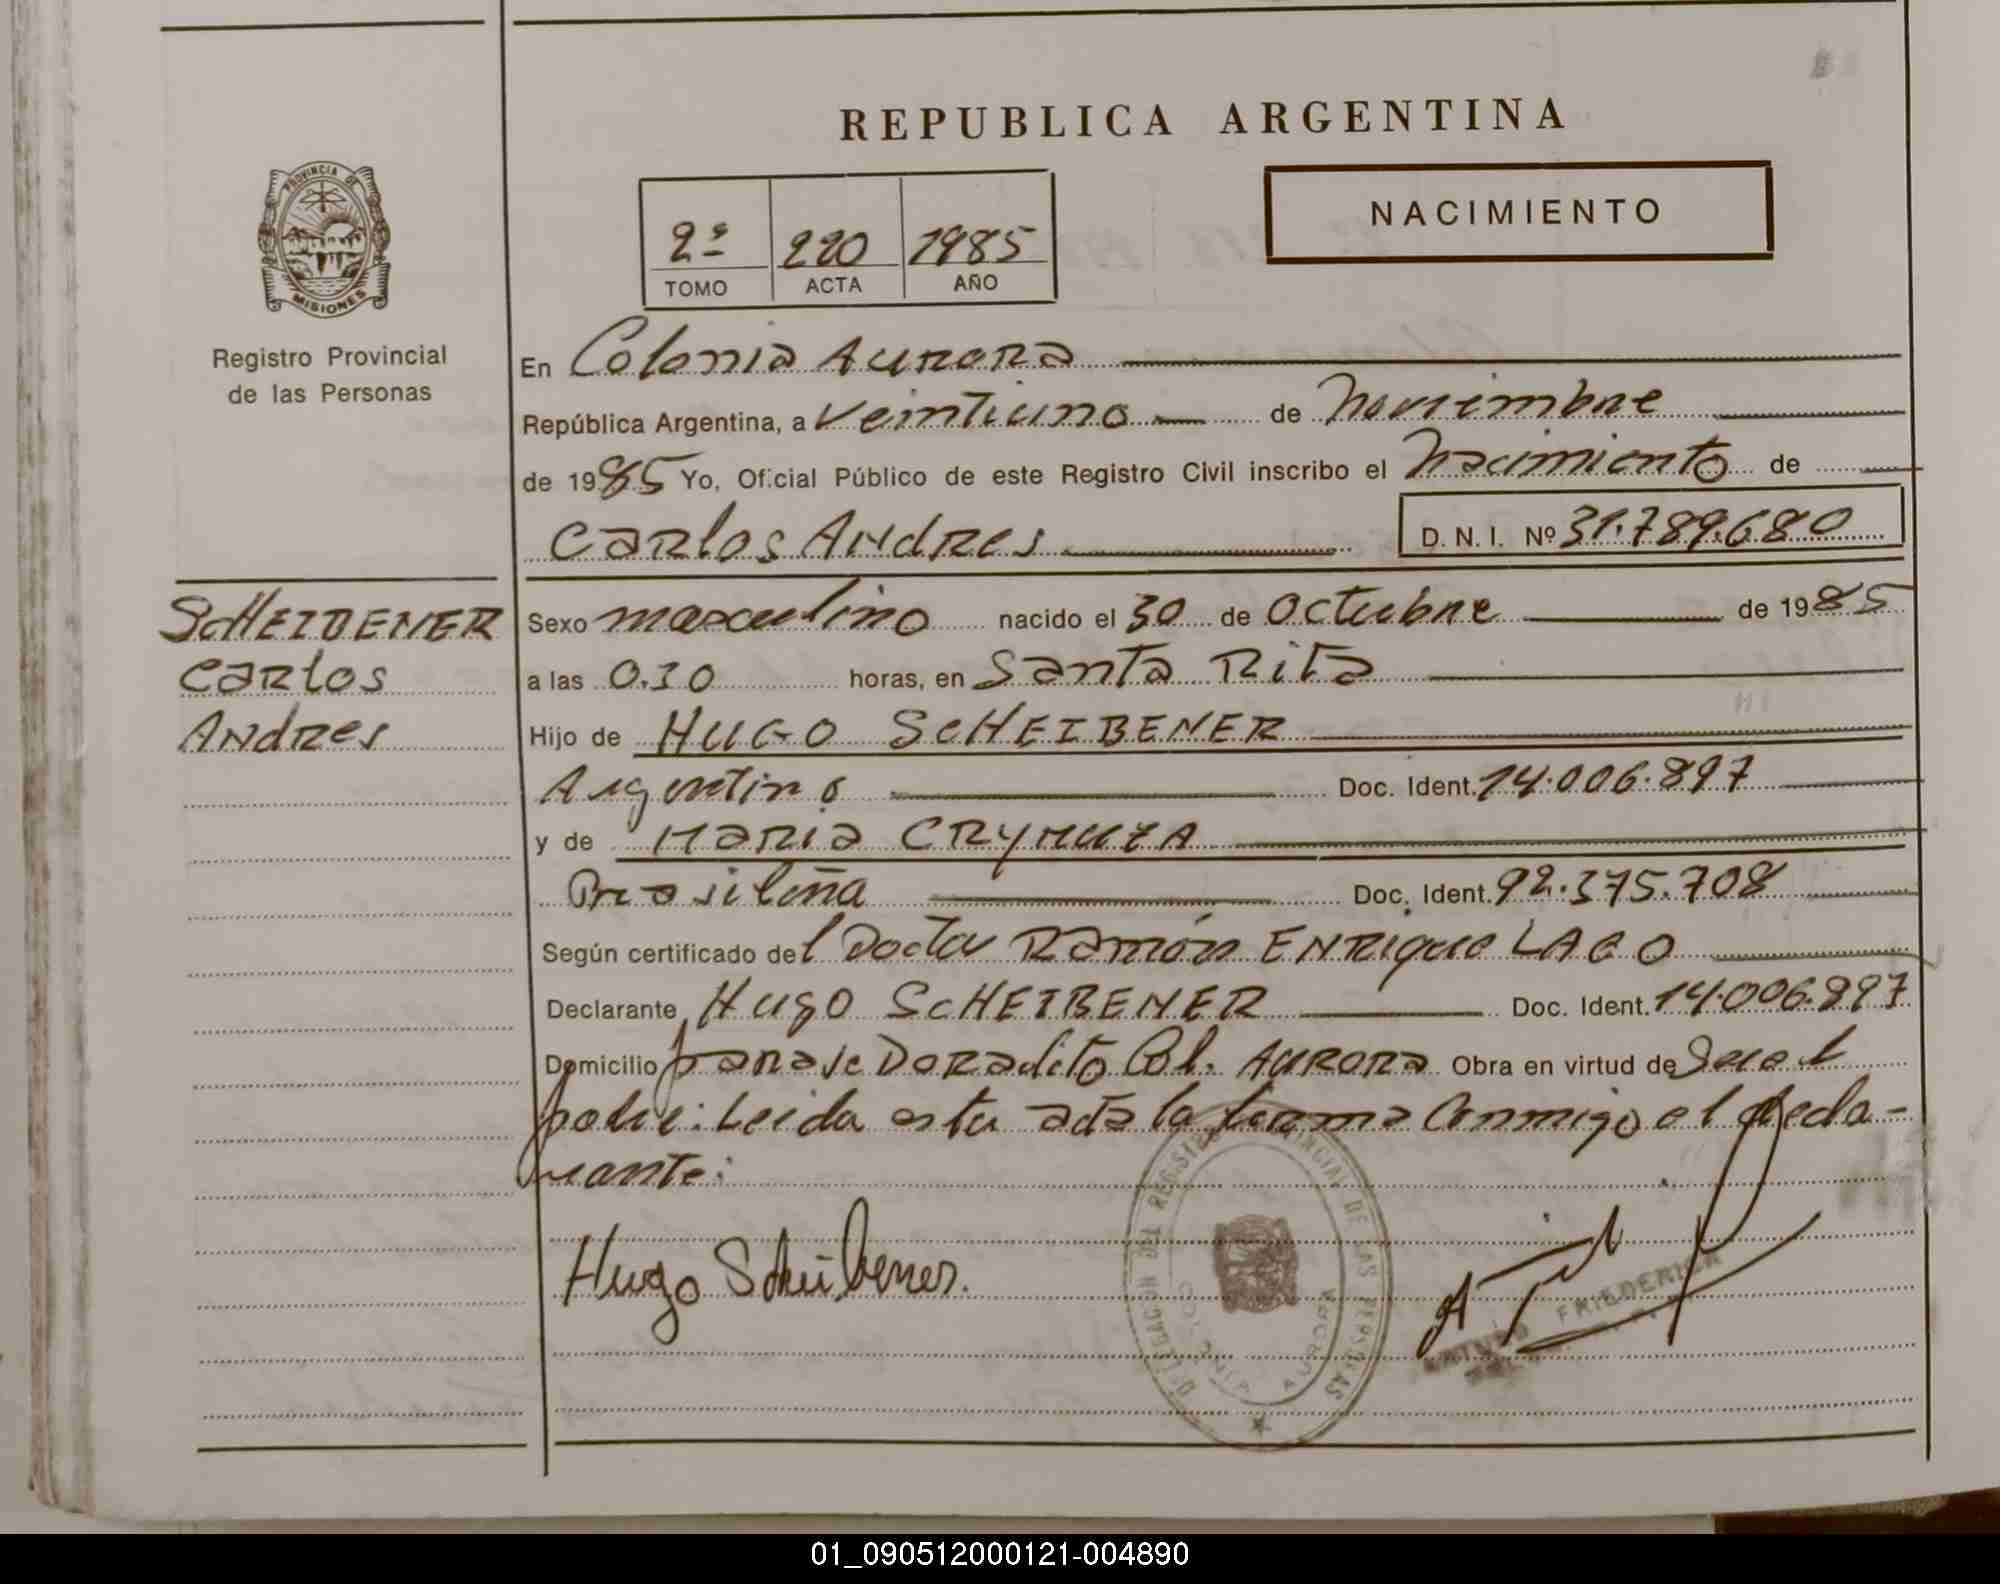 REPUBLICA ARGENTINA
NACIMIENTO
2º 220 1985
TOMO ACTA AÑO
PROVINCIA DE
MISIONES
Registro Provincial
de las Personas
En Colonia Aurora
República Argentina, a veintiuno de noviembre
de 1985 Yo, Oficial Público de este Registro Civil inscribo el nacimiento de
Carlos Andres D. N. I. Nº 31.789.680
SCHEIBENER
Carlos
Andres
Sexo masculino nacido el 30 de Octubre de 1985
a las 0.30 horas, en Santa Rita
Hijo de HUGO SCHEIBENER
Argentino Doc. Ident. 14.006.897
y de Maria CRYMUZA
Brasileña Doc. Ident. 92.375.708
Según certificado del Doctor Ramón Enrique LAGO
Declarante Hugo SCHEIBENER Doc. Ident. 14.006.897
Domicilio paraje Doradito Col. Aurora Obra en virtud de ser el
padre: Leida esta acta la firma conmigo el decla-
rante:
Hugo Scheibener.
DELEGACION DEL REGISTRO PROVINCIAL DE LAS PERSONAS
COLONIA AURORA
FRIEDERICH
01_090512000121-004890